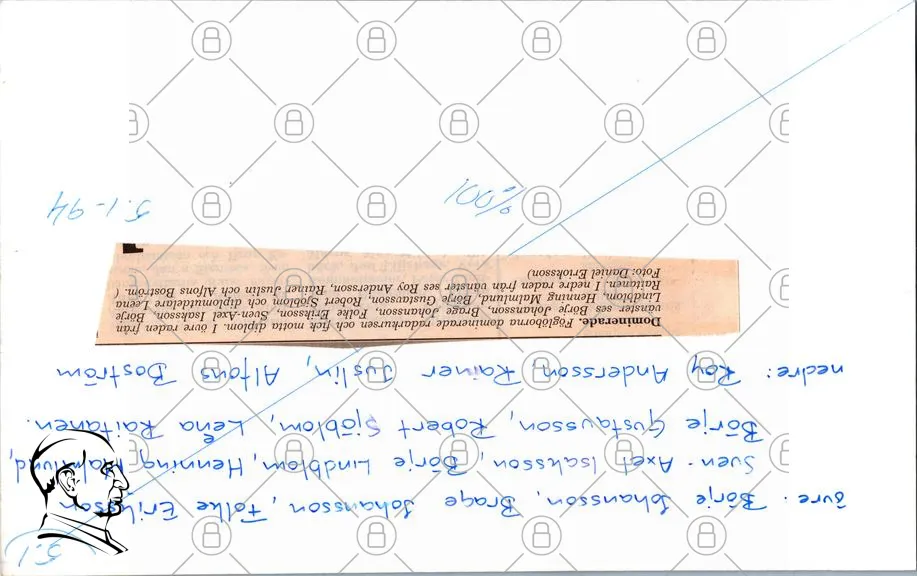 5.1
övre: Börje Johansson, Brage Johansson, Folke Eriksson
Sven-Axel Isaksson, Börje Lindblom, Henning Malmlund,
Börje Gustavsson, Robert Sjöblom, Leena Raitanen.
nedre: Roy Andersson, Rainer Juslin, Alfons Boström
Dominerade. Föglöborna dominerade radarkursen och fick motta diplom. I övre raden från
vänster ses Börje Johansson, Brage Johansson, Folke Eriksson, Sven-Axel Isaksson, Börje
Lindblom, Henning Malmlund, Börje Gustavsson, Robert Sjöblom och diplomutdelare Leena
Raitanen. I nedre raden från vänster ses Roy Anderson, Rainer Justin och Alfons Boström. (
Foto: Daniel Eriksson)
100%
5.1-94